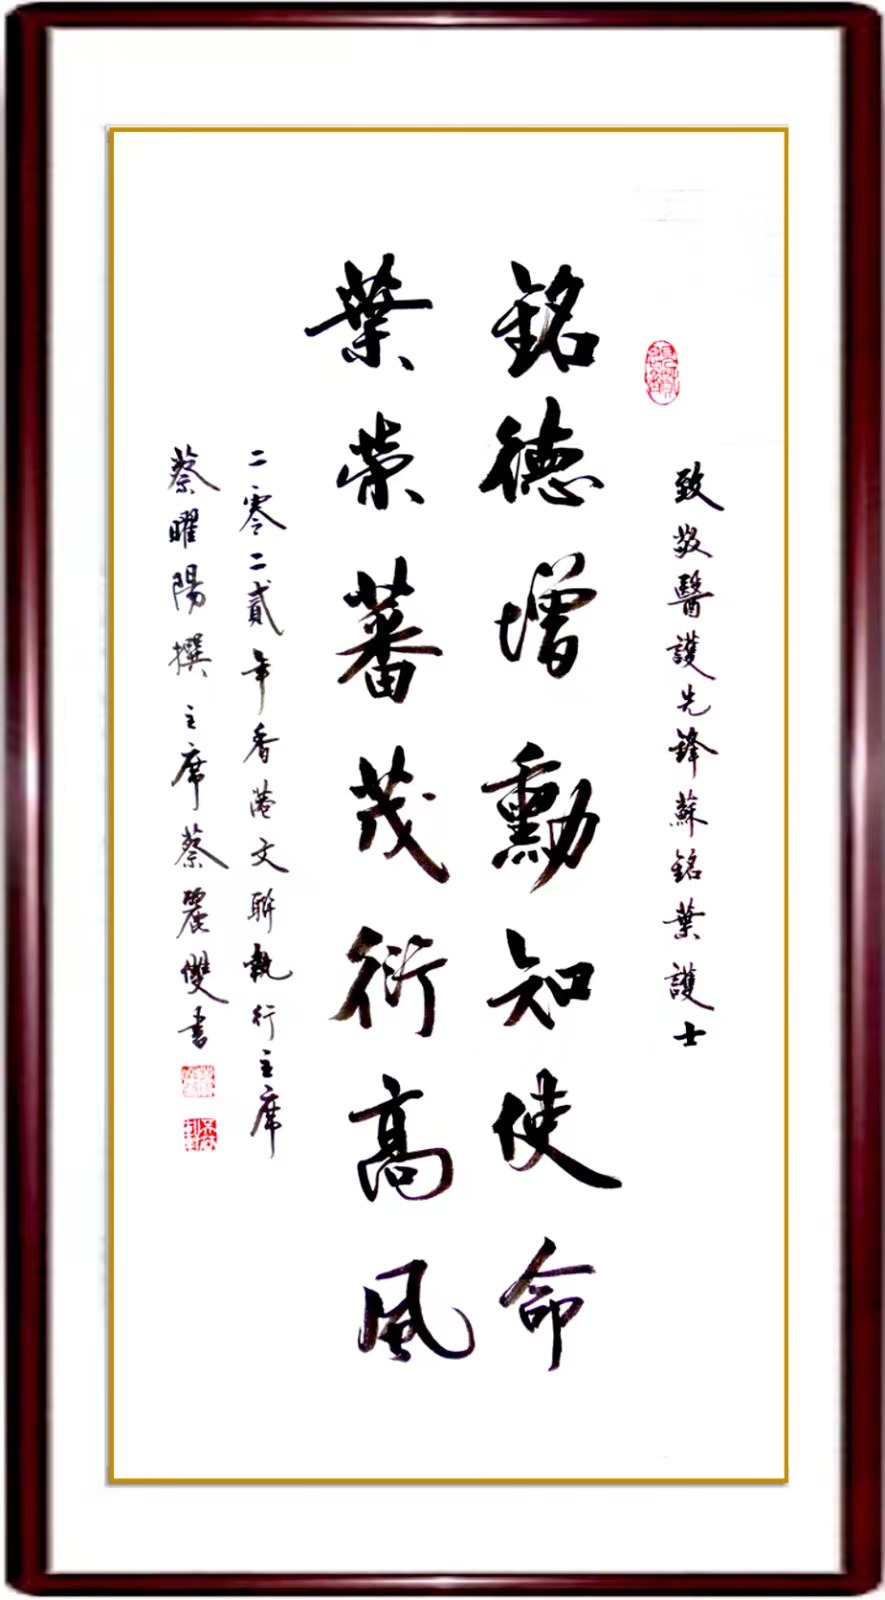 致敬醫護先鋒蘇銘葉護士
銘德增勳知使命
葉榮蕃茂衍高風
二零二貳年香港文聯執行主席
蔡曜陽撰主席蔡麗雙書